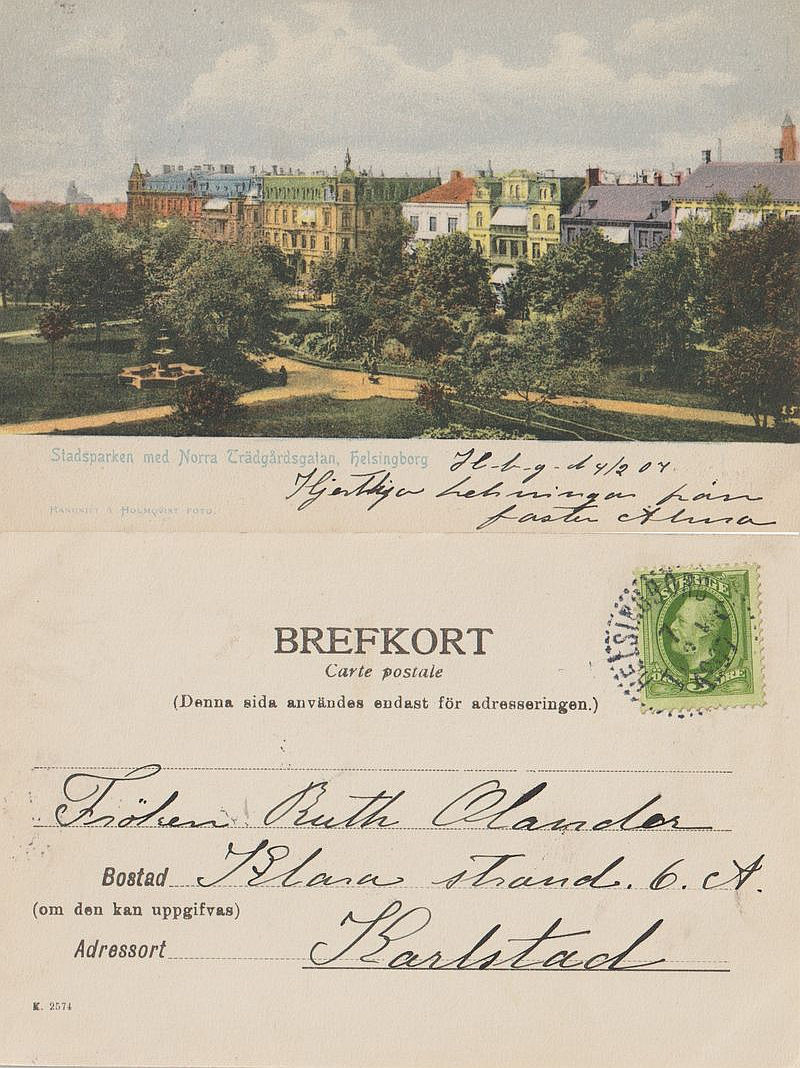 Stadsparken med Norra Trädgårdsgatan, Helsingborg
H-b-g. d 4/2 04
Hjertliga helsningar från
faster Alma
HOLMQVIST FOTO.
BREFKORT
Carte postale
(Denna sida användes endast för adresseringen.)
SVERIGE
HELSINGBORG
ÖRE
Fröken Ruth Olander
Bostad Klara strand. 6. A.
(om den kan uppgifvas)
Adressort Karlstad
K. 2574